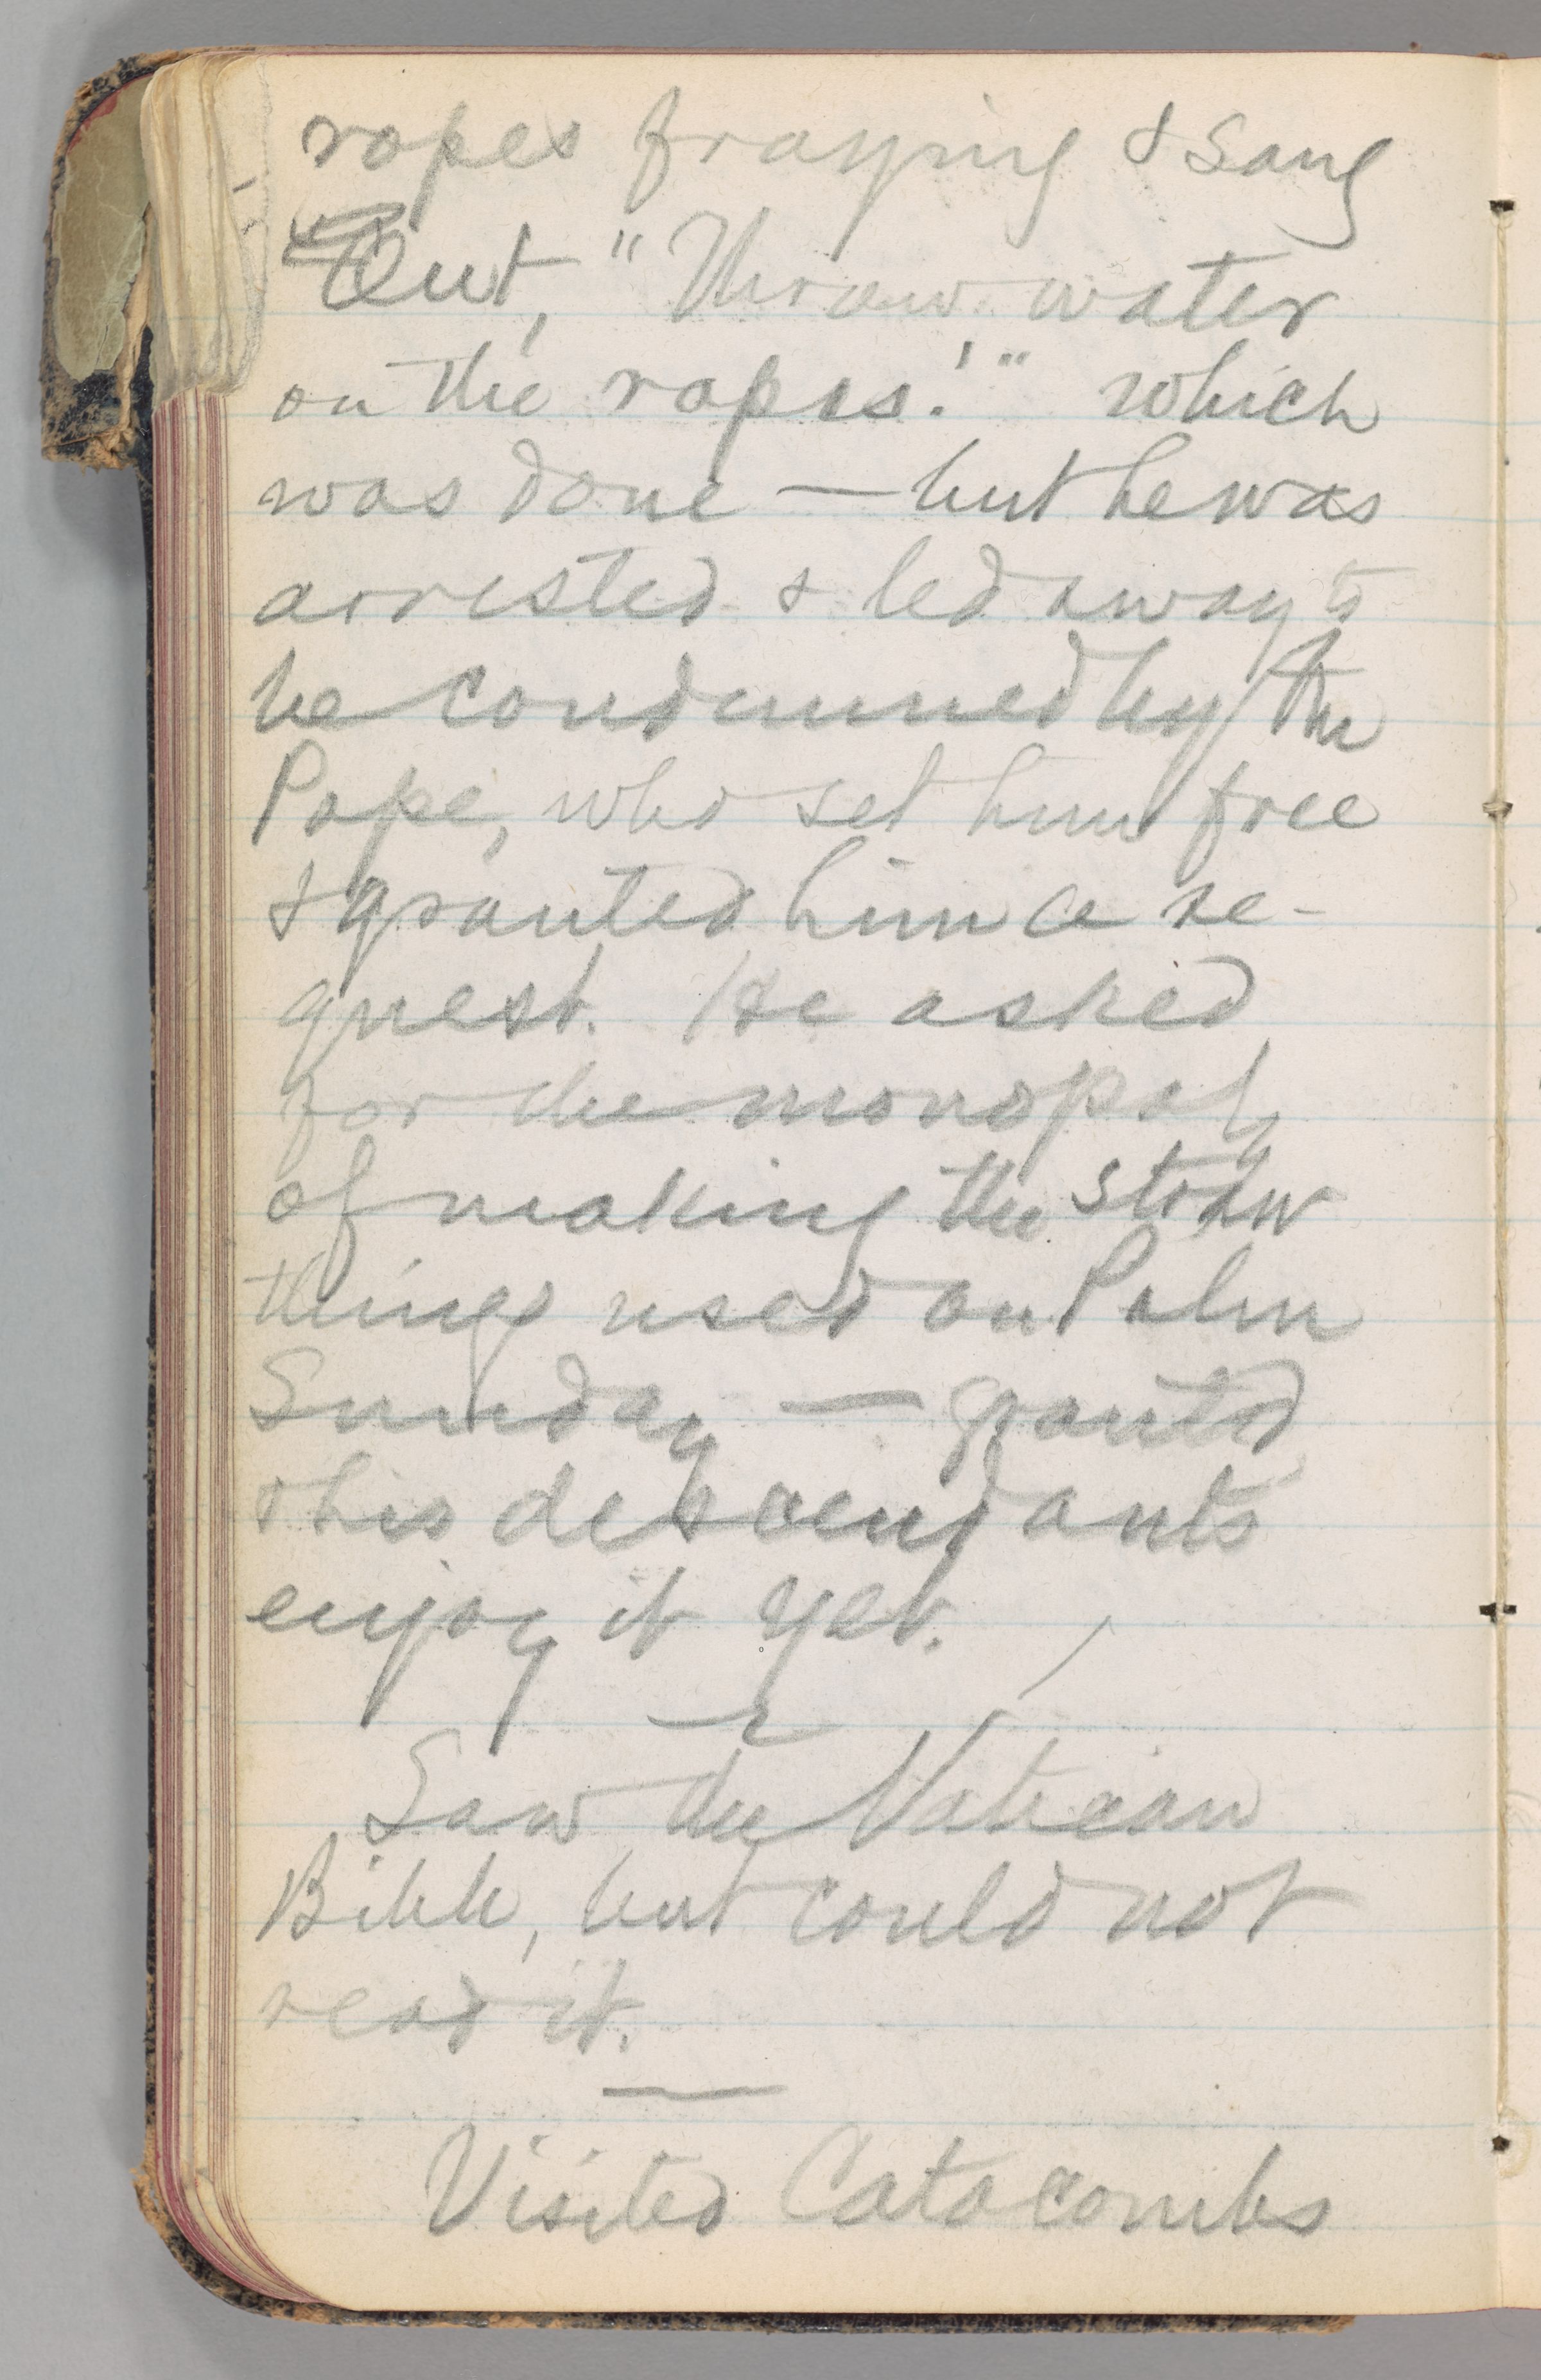 ropes fraying & sang
Out, "Throw water
on the ropes!" which
was done — but he was
arrested & led away to
be condemned by the
Pope, who set him free
& granted him a re-
quest. He asked
for the monopoly
of making the straw
things used on Palm
Sunday — granted
& his descendants
enjoy it yet.
Saw the Vatican
Bible, but could not
read it.
—
Visited Catacombs